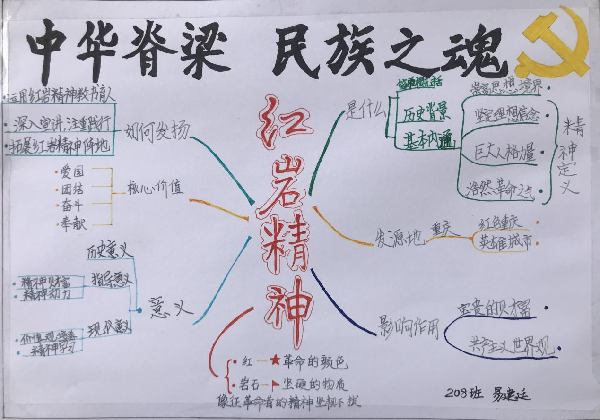 中华脊梁 民族之魂
红岩精神
运用红岩精神教书育人
深入宣讲,注重践行
拓展红岩精神阵地
如何发扬
爱国
团结
奋斗
奉献
核心价值
历史意义
精神财富
精神动力
指导意义
现代意义
意义
是什么
历史背景
基本内涵
崇高思想境界
坚定理想信念
巨大人格力量
浩然革命正气
精神定义
发源地
重庆
红色重庆
英雄城市
影响作用
宝贵的财富
共产主义世界观
红 革命的颜色
岩石 坚硬的物质
象征革命者的精神坚韧不拔
208班